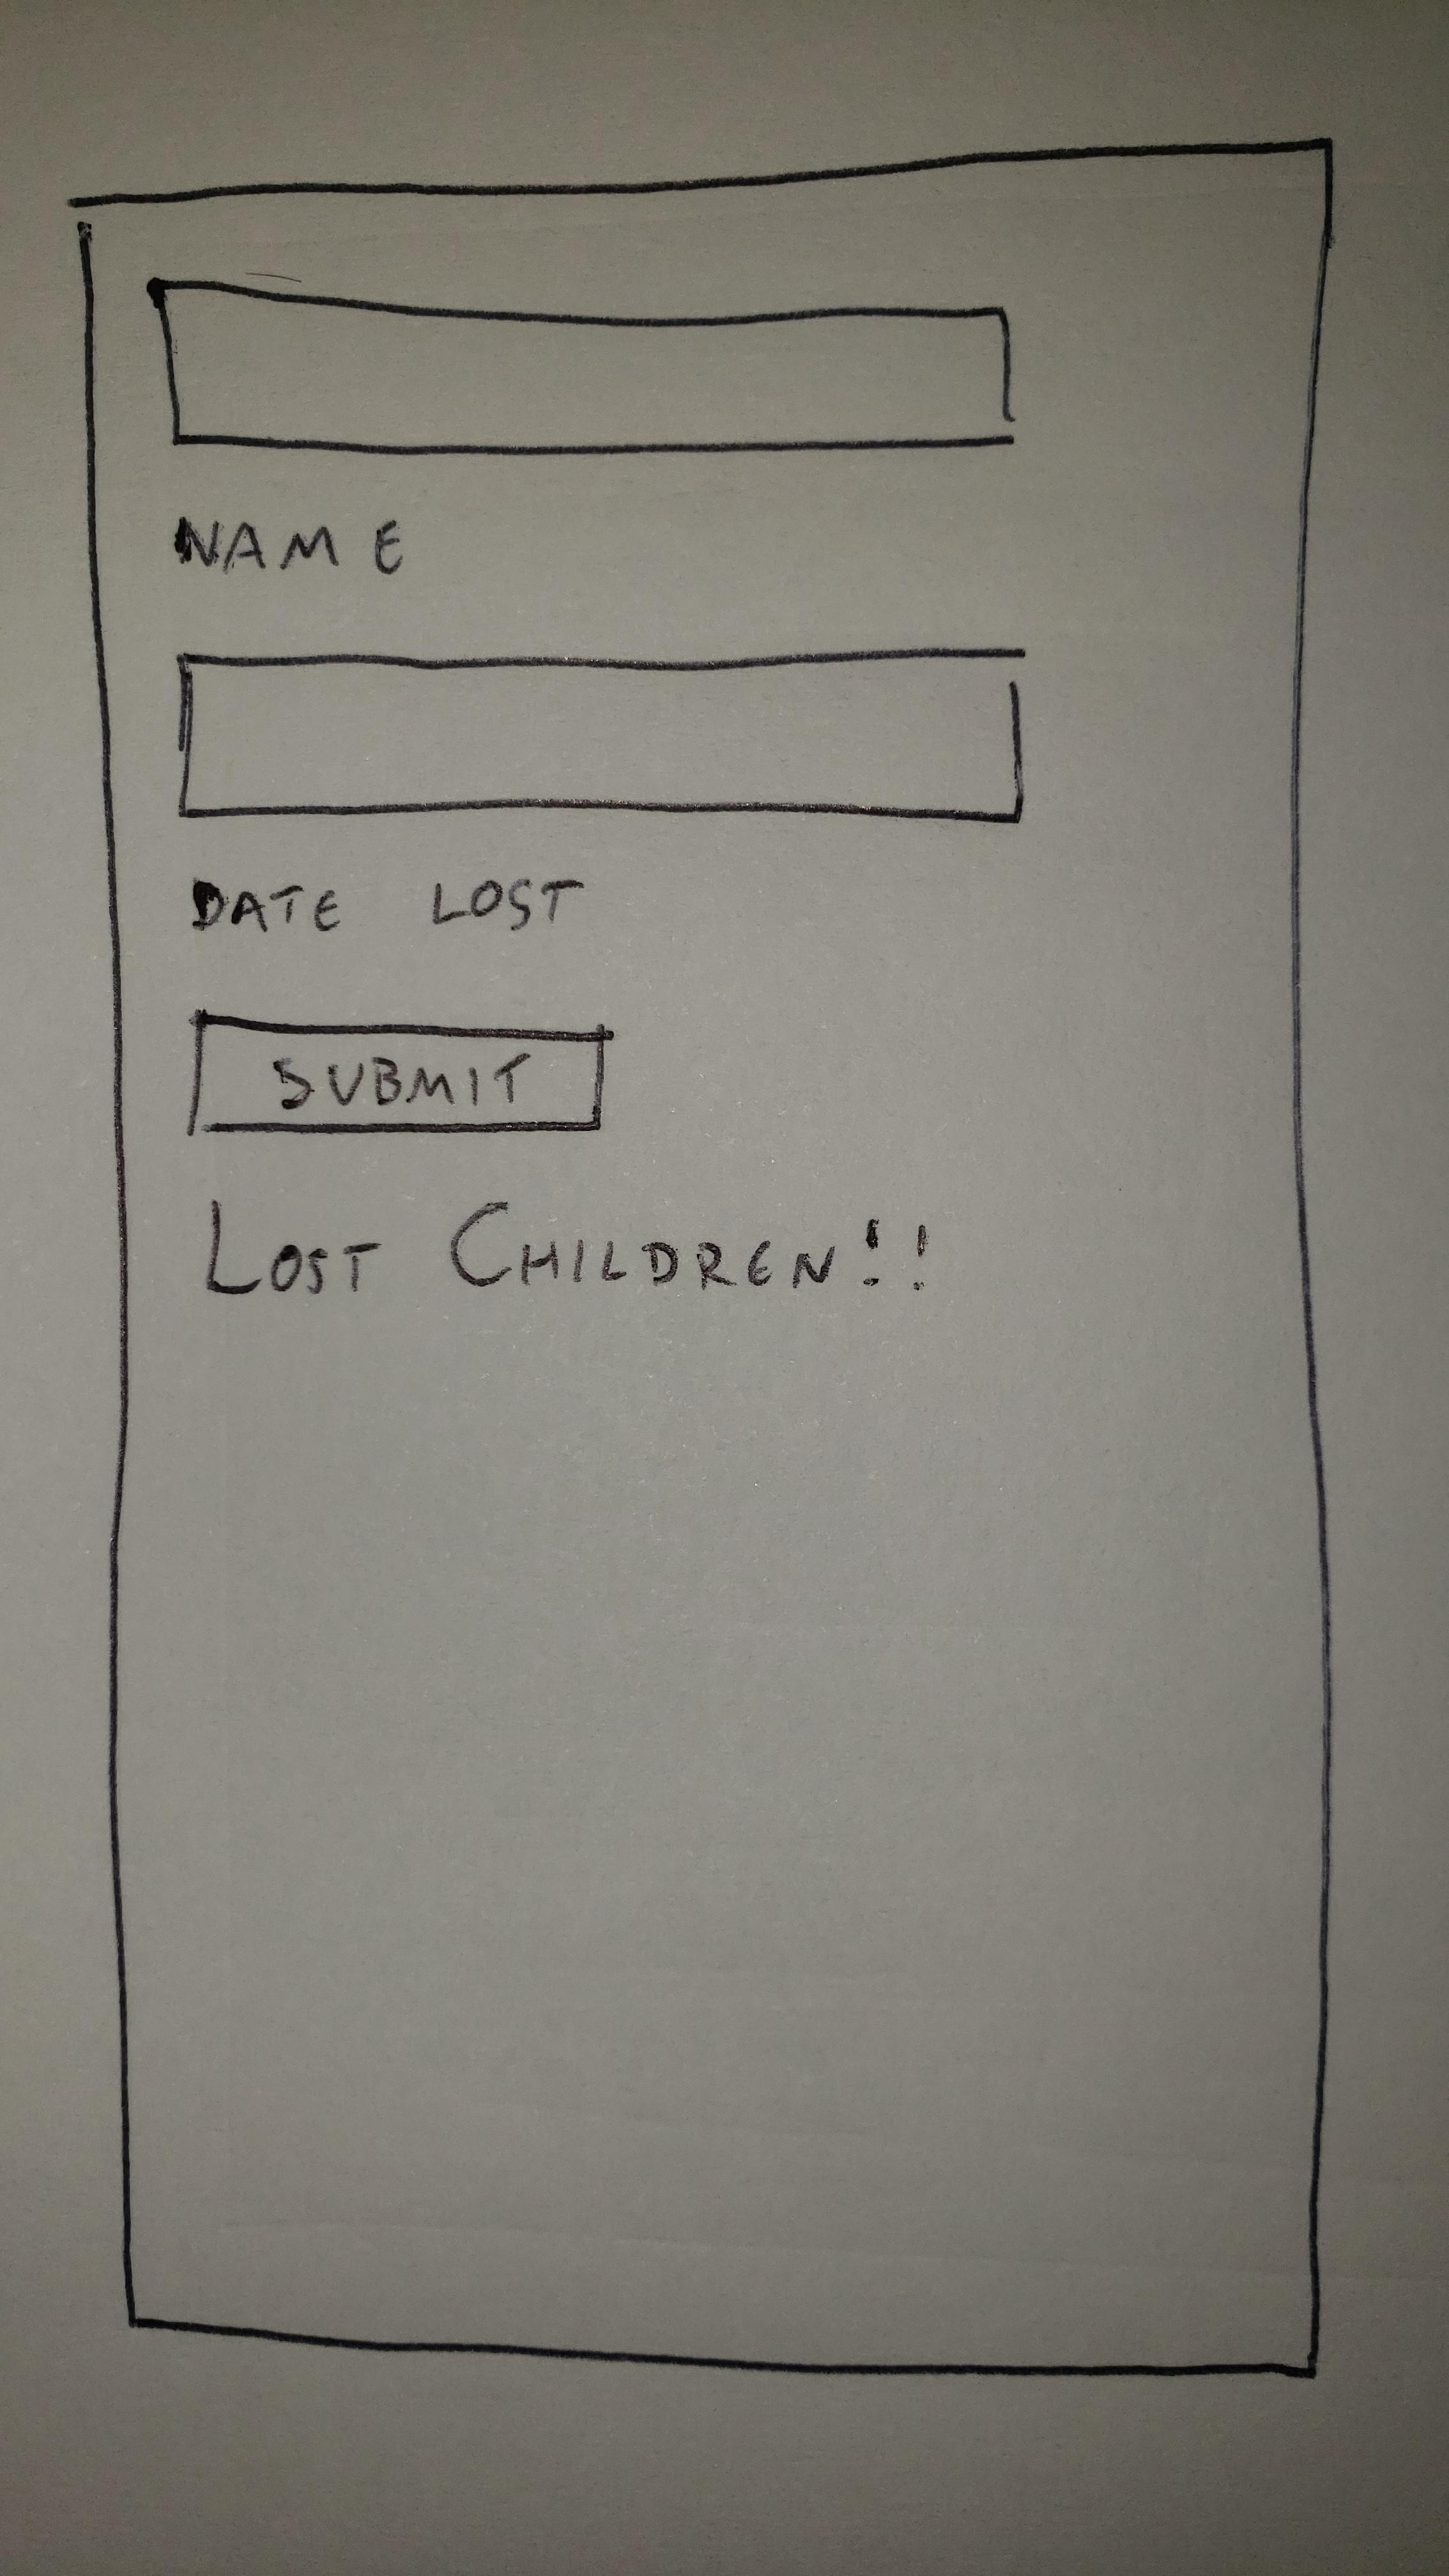 NAME
DATE LOST
SUBMIT
LOST CHILDREN!!